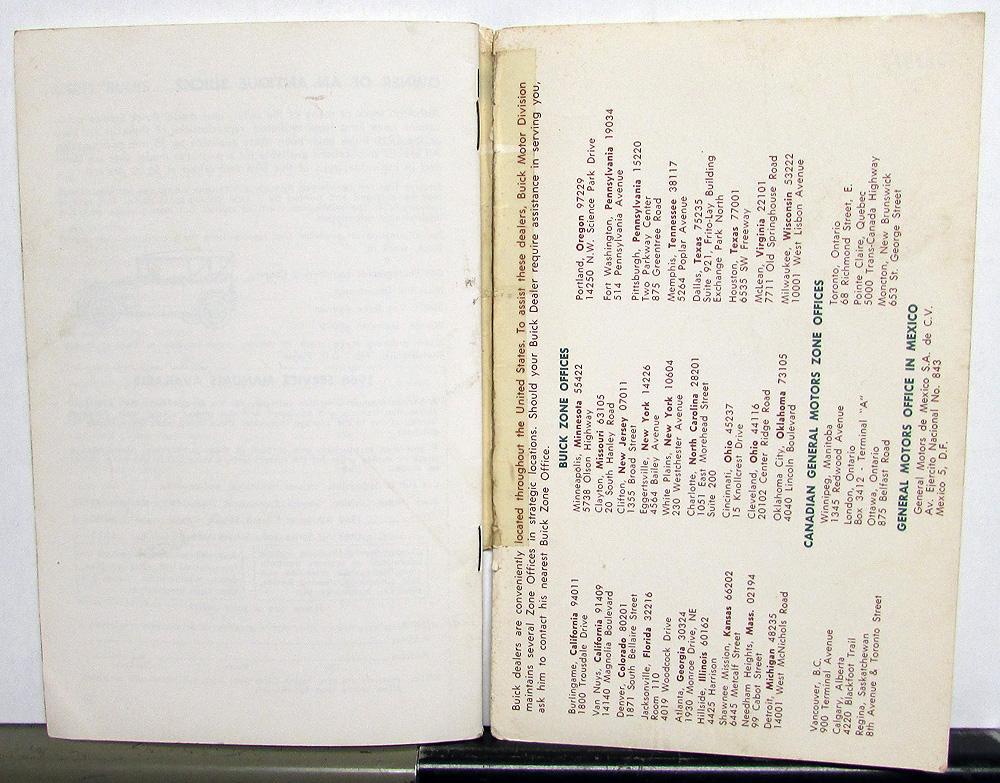 Buick dealers are conveniently located throughout the United States. To assist these dealers, Buick Motor Division
maintains several Zone Offices in strategic locations. Should your Buick Dealer require assistance in serving you,
ask him to contact his nearest Buick Zone Office.
BUICK ZONE OFFICES
Burlingame, California 94011
1800 Trousdale Drive
Van Nuys, California 91409
14140 Magnolia Boulevard
Denver, Colorado 80201
1871 South Bellaire Street
Jacksonville, Florida 32216
Room 110
4019 Woodcock Drive
Atlanta, Georgia 30324
1930 Monroe Drive, NE
Hillside, Illinois 60162
4425 Harrison
Shawnee Mission, Kansas 66202
6445 Metcalf Street
Needham Heights, Mass. 02194
99 Cabot Street
Detroit, Michigan 48235
14001 West McNichols Road
Minneapolis, Minnesota 55422
5738 Olson Highway
Clayton, Missouri 63105
20 South Hanley Road
Clifton, New Jersey 07011
1355 Broad Street
Eggertsville, New York 14226
4564 Bailey Avenue
White Plains, New York 10604
230 Westchester Avenue
Charlotte, North Carolina 28201
1051 East Morehead Street
Suite 200
Cincinnati, Ohio 45237
15 Knollcrest Drive
Cleveland, Ohio 44116
20102 Center Ridge Road
Oklahoma City, Oklahoma 73105
4040 Lincoln Boulevard
Portland, Oregon 97229
14250 N.W. Science Park Drive
Fort Washington, Pennsylvania 19034
514 Pennsylvania Avenue
Pittsburgh, Pennsylvania 15220
Two Parkway Center
875 Greentree Road
Memphis, Tennessee 38117
5264 Poplar Avenue
Dallas, Texas 75235
Suite 921, Frito-Lay Building
Exchange Park North
Houston, Texas 77001
6535 SW Freeway
McLean, Virginia 22101
7711 Old Springhouse Road
Milwaukee, Wisconsin 53222
10001 West Lisbon Avenue
CANADIAN GENERAL MOTORS ZONE OFFICES
Vancouver, B.C.
900 Terminal Avenue
Calgary, Alberta
4220 Blackfoot Trail
Regina, Saskatchewan
8th Avenue & Toronto Street
Winnipeg, Manitoba
1345 Redwood Avenue
London, Ontario
Box 3412 - Terminal "A"
Ottawa, Ontario
875 Belfast Road
Toronto, Ontario
68 Richmond Street, E.
Pointe Claire, Quebec
5000 Trans-Canada Highway
Moncton, New Brunswick
653 St. George Street
GENERAL MOTORS OFFICE IN MEXICO
General Motors de Mexico S.A. de C.V.
Av. Ejercito Nacional No. 843
Mexico 5, D.F.